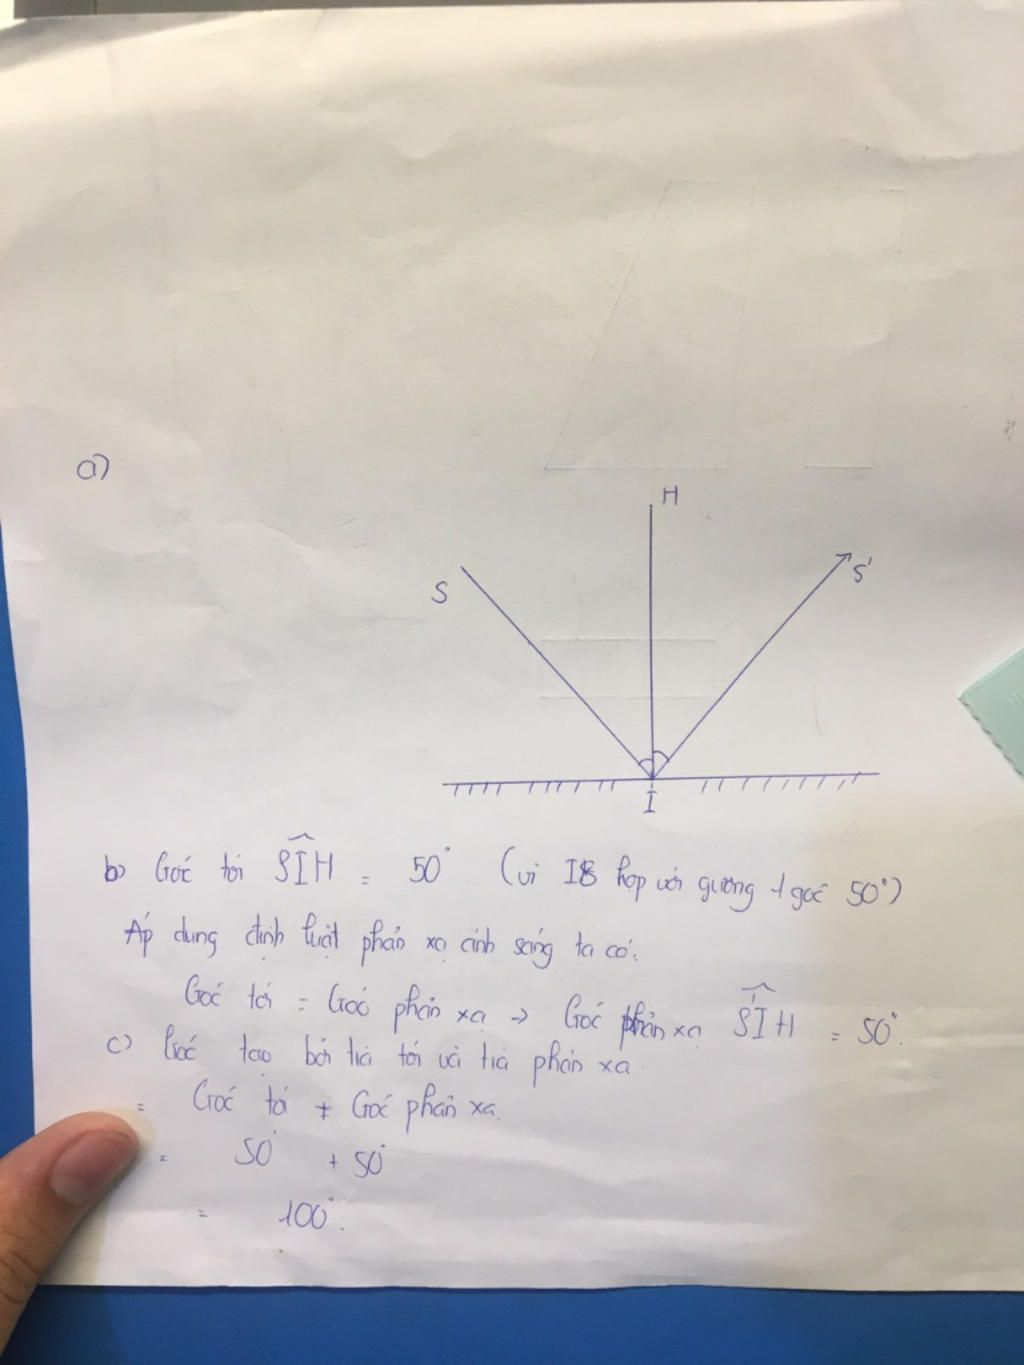 a)
H
S
S'
I
b) Góc tới SIH = 50° (vì IS hợp với gương 1 góc 50°)
Áp dụng định luật phản xạ ánh sáng ta có:
Góc tới = Góc phản xạ → Góc phản xạ S'IH = 50°.
c) Góc tạo bởi tia tới và tia phản xạ
= Góc tới + Góc phản xạ.
= 50° + 50°
= 100°.